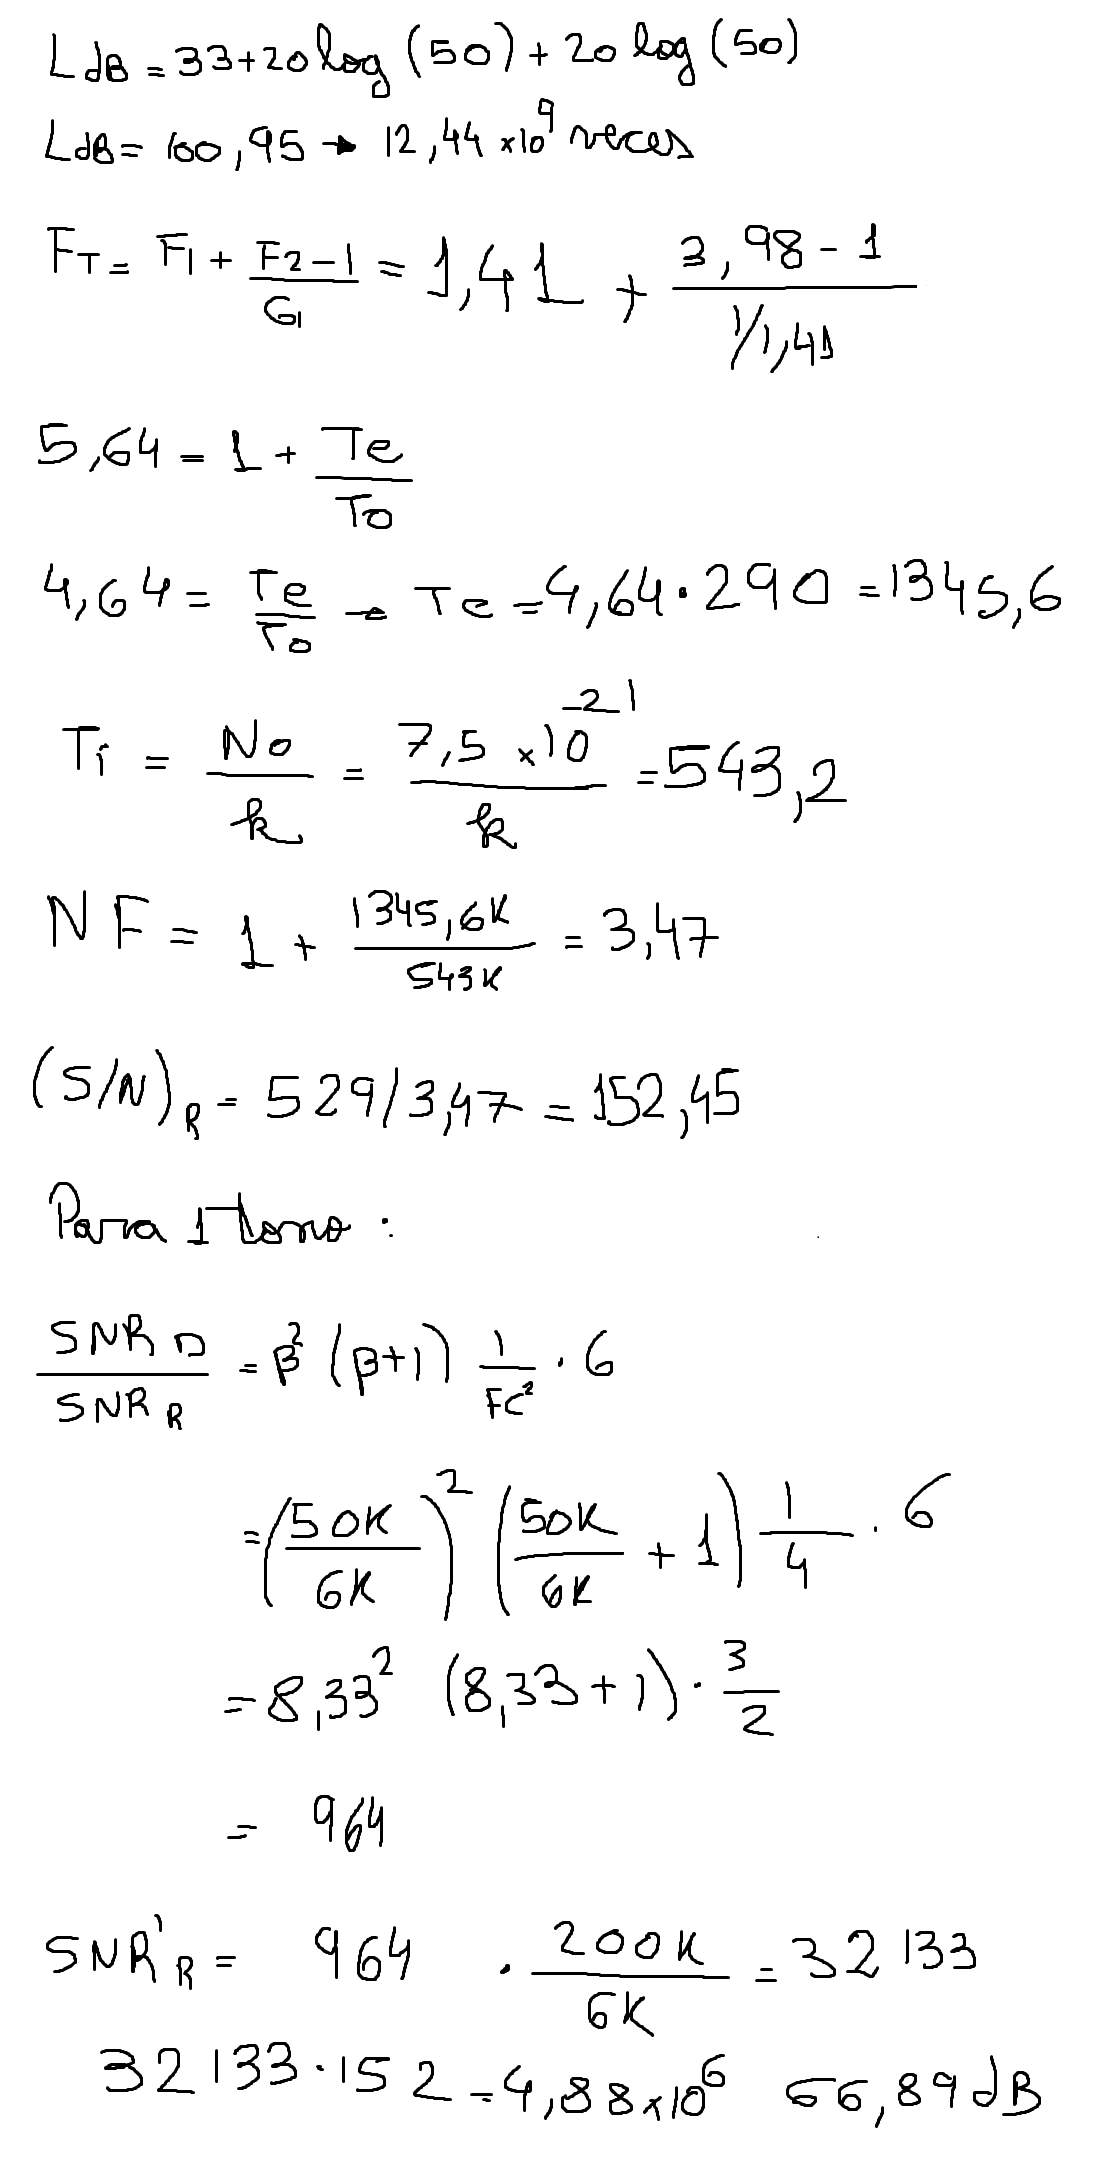 LdB = 33+20 log (50) + 20 log (50)
LdB = 100,95 → 12,44 x10^9 veces
FT = F1 + (F2-1)/G1 = 1,41 + (3,98-1)/(1/1,41)
5,64 = 1 + Te/To
4,64 = Te/To → Te = 4,64·290 = 1345,6
Ti = No/k = 7,5 x10^-21/k = 543,2
NF = 1 + 1345,6K/543K = 3,47
(S/N)R = 529/3,47 = 152,45
Para 1 tono :
SNR D/SNR R = β² (β+1) 1/FC² · 6
= (50K/6K)² (50K/6K + 1) 1/4 · 6
= 8,33² (8,33+1) · 3/2
= 964
SNR'R = 964 · 200K/6K = 32133
32133·152 = 4,88x10^6 66,89dB